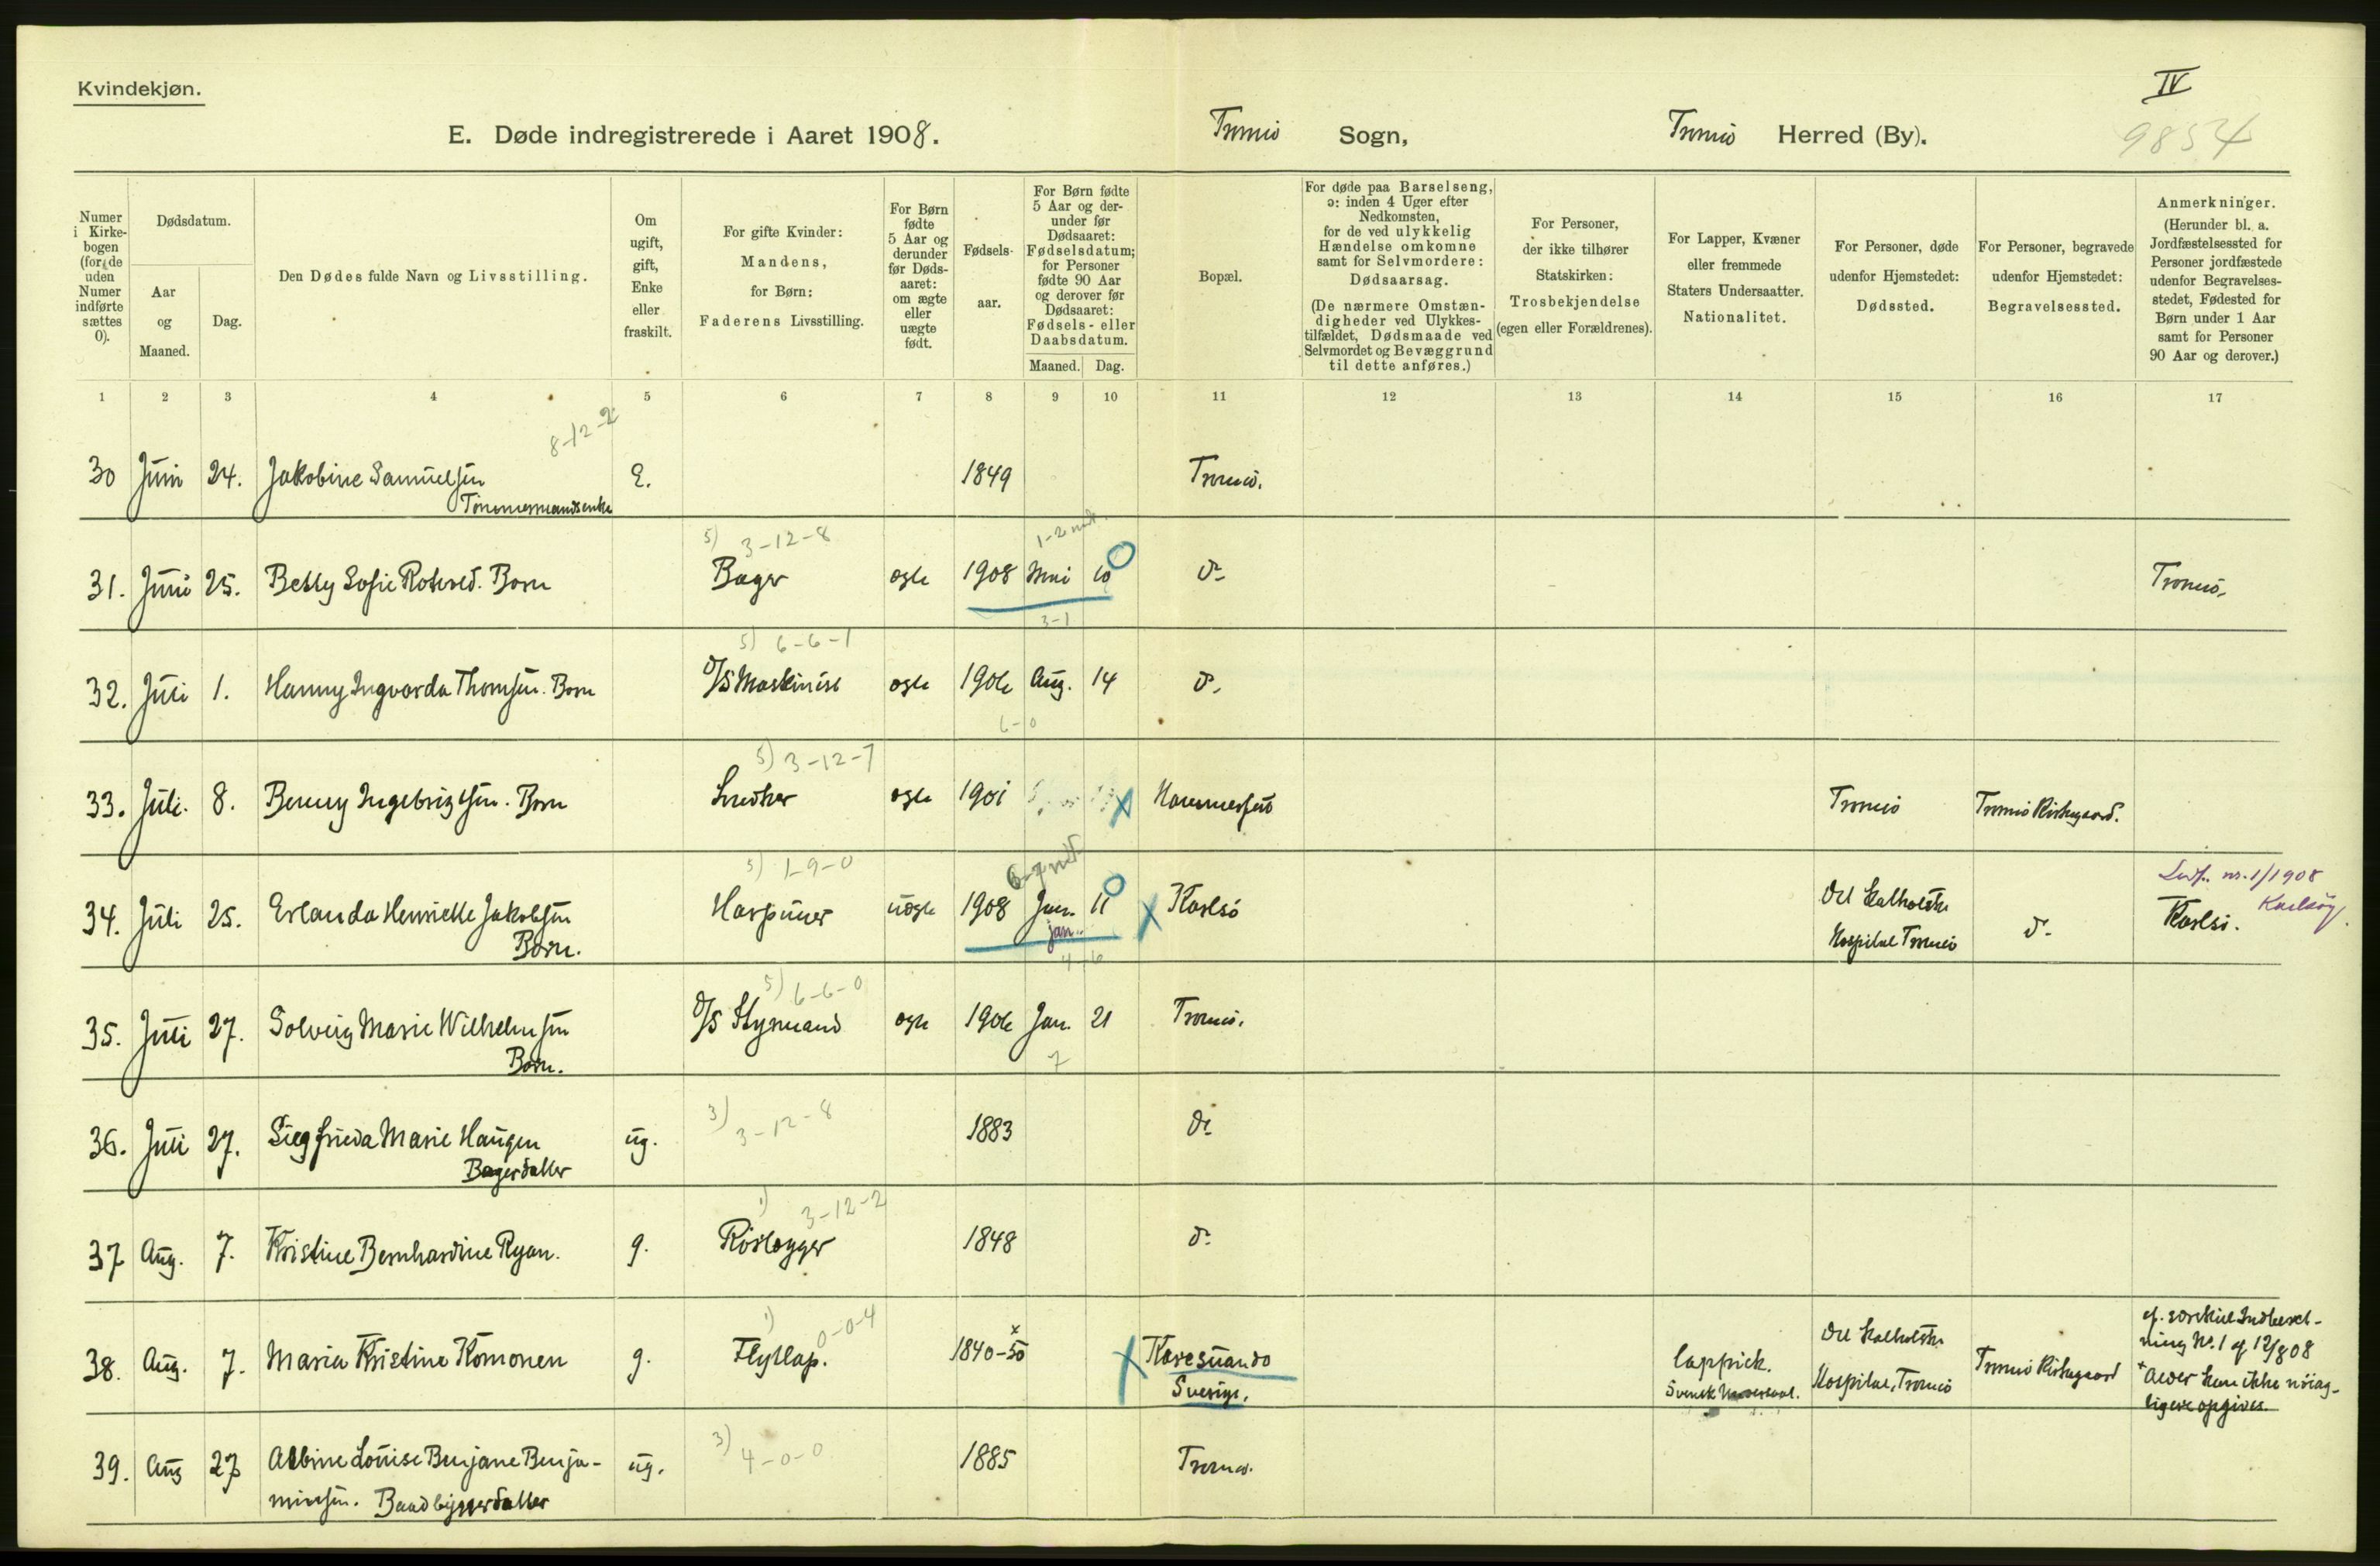 Kvindekjøn.
IV
E. Døde indregistrerede i Aaret 1908.
Tromsø Sogn,
Tromsø Herred (By).
9854
Numer
i Kirke-
bogen
(for de
uden
Numer
indførte
sættes
0).
Dødsdatum.
Aar
og
Maaned.
Dag.
Den Dødes fulde Navn og Livsstilling.
Om
ugift,
gift,
Enke
eller
fraskilt.
For gifte Kvinder:
Mandens,
for Børn:
Faderens Livsstilling.
For Børn
fødte
5 Aar og
derunder
før Døds-
aaret:
om ægte
eller
uægte
født.
Fødsels-
aar.
For Børn fødte
5 Aar og der-
under før
Dødsaaret:
Fødselsdatum;
for Personer
fødte 90 Aar
og derover før
Dødsaaret:
Fødsels- eller
Daabsdatum.
Maaned. Dag.
Bopæl.
For døde paa Barselseng,
ɔ: inden 4 Uger efter
Nedkomsten,
for de ved ulykkelig
Hændelse omkomne
samt for Selvmordere:
Dødsaarsag.
(De nærmere Omstæn-
digheder ved Ulykkes-
tilfældet, Dødsmaade ved
Selvmordet og Bevæggrund
til dette anføres.)
For Personer,
der ikke tilhører
Statskirken:
Trosbekjendelse
(egen eller Forældrenes).
For Lapper, Kvæner
eller fremmede
Staters Undersaatter.
Nationalitet.
For Personer, døde
udenfor Hjemstedet:
Dødssted.
For Personer, begravede
udenfor Hjemstedet:
Begravelsessted.
Anmerkninger.
(Herunder bl. a.
Jordfæstelsessted for
Personer jordfæstede
udenfor Begravelses-
stedet, Fødested for
Børn under 1 Aar
samt for Personer
90 Aar og derover.)
1 2 3 4 5 6 7 8 9 10 11 12 13 14 15 16 17
8-12-2
30 Juni 24. Jakobine Samuelsen E. 1849 Tromsø.
Tømmermandsenke
5) 3-12-8 1-2 mdr.
31. Juni 25. Betty Sofie Rotvold. Barn Bager ægte 1908 Mai 10 do Tromsø.
3-1
5) 6-6-1
32. Juli 1. Hanny Ingvarda Thomsen. Barn D/S Maskinist ægte 1906 Aug. 14 do.
6-0
5) 3-12-7
33. Juli. 8. Benny Ingebrigtsen. Barn Snedker ægte 1901 Hammerfest Tromsø Tromsø Kirkegaard.
5) 1-9-0 6-7 mdr. Karlsøy
34. Juli 25. Erlanda Henriette Jakobsen Harpuner uægte 1908 Jan. 11 Karlsø Det katholske do. Karlsø.
Barn. jan. Hospital Tromsø
5) 6-6-0
35. Juli 27. Solveig Marie Wilhelmsen D/S Styrmand ægte 1906 Jan. 21 Tromsø.
Barn. 7
3) 3-12-8
36. Juli 27. Siegfrieda Marie Haugen ug. 1883 do
Bagerdatter
1) 3-12-2
37 Aug. 7. Kristine Bernhardine Ryan. g. Rørlægger 1848 do
1) 0-0-4
38. Aug. 7. Maria Kristine Komonen g. Flytlap. 1840-50 x Karesuando lappisk. Det katholske Tromsø Kirkegaard cf. særskilt Indberet-
Sverige. Svensk Undersaat. Hospital, Tromsø ning No. 1 af 12/8 08
+ Alder kan ikke nøiag-
ligere opgives.
3) 4-0-0
39. Aug 27 Albine Louise Benjane Benja- ug. 1885 Tromsø.
minsen. Baadbyggerdatter